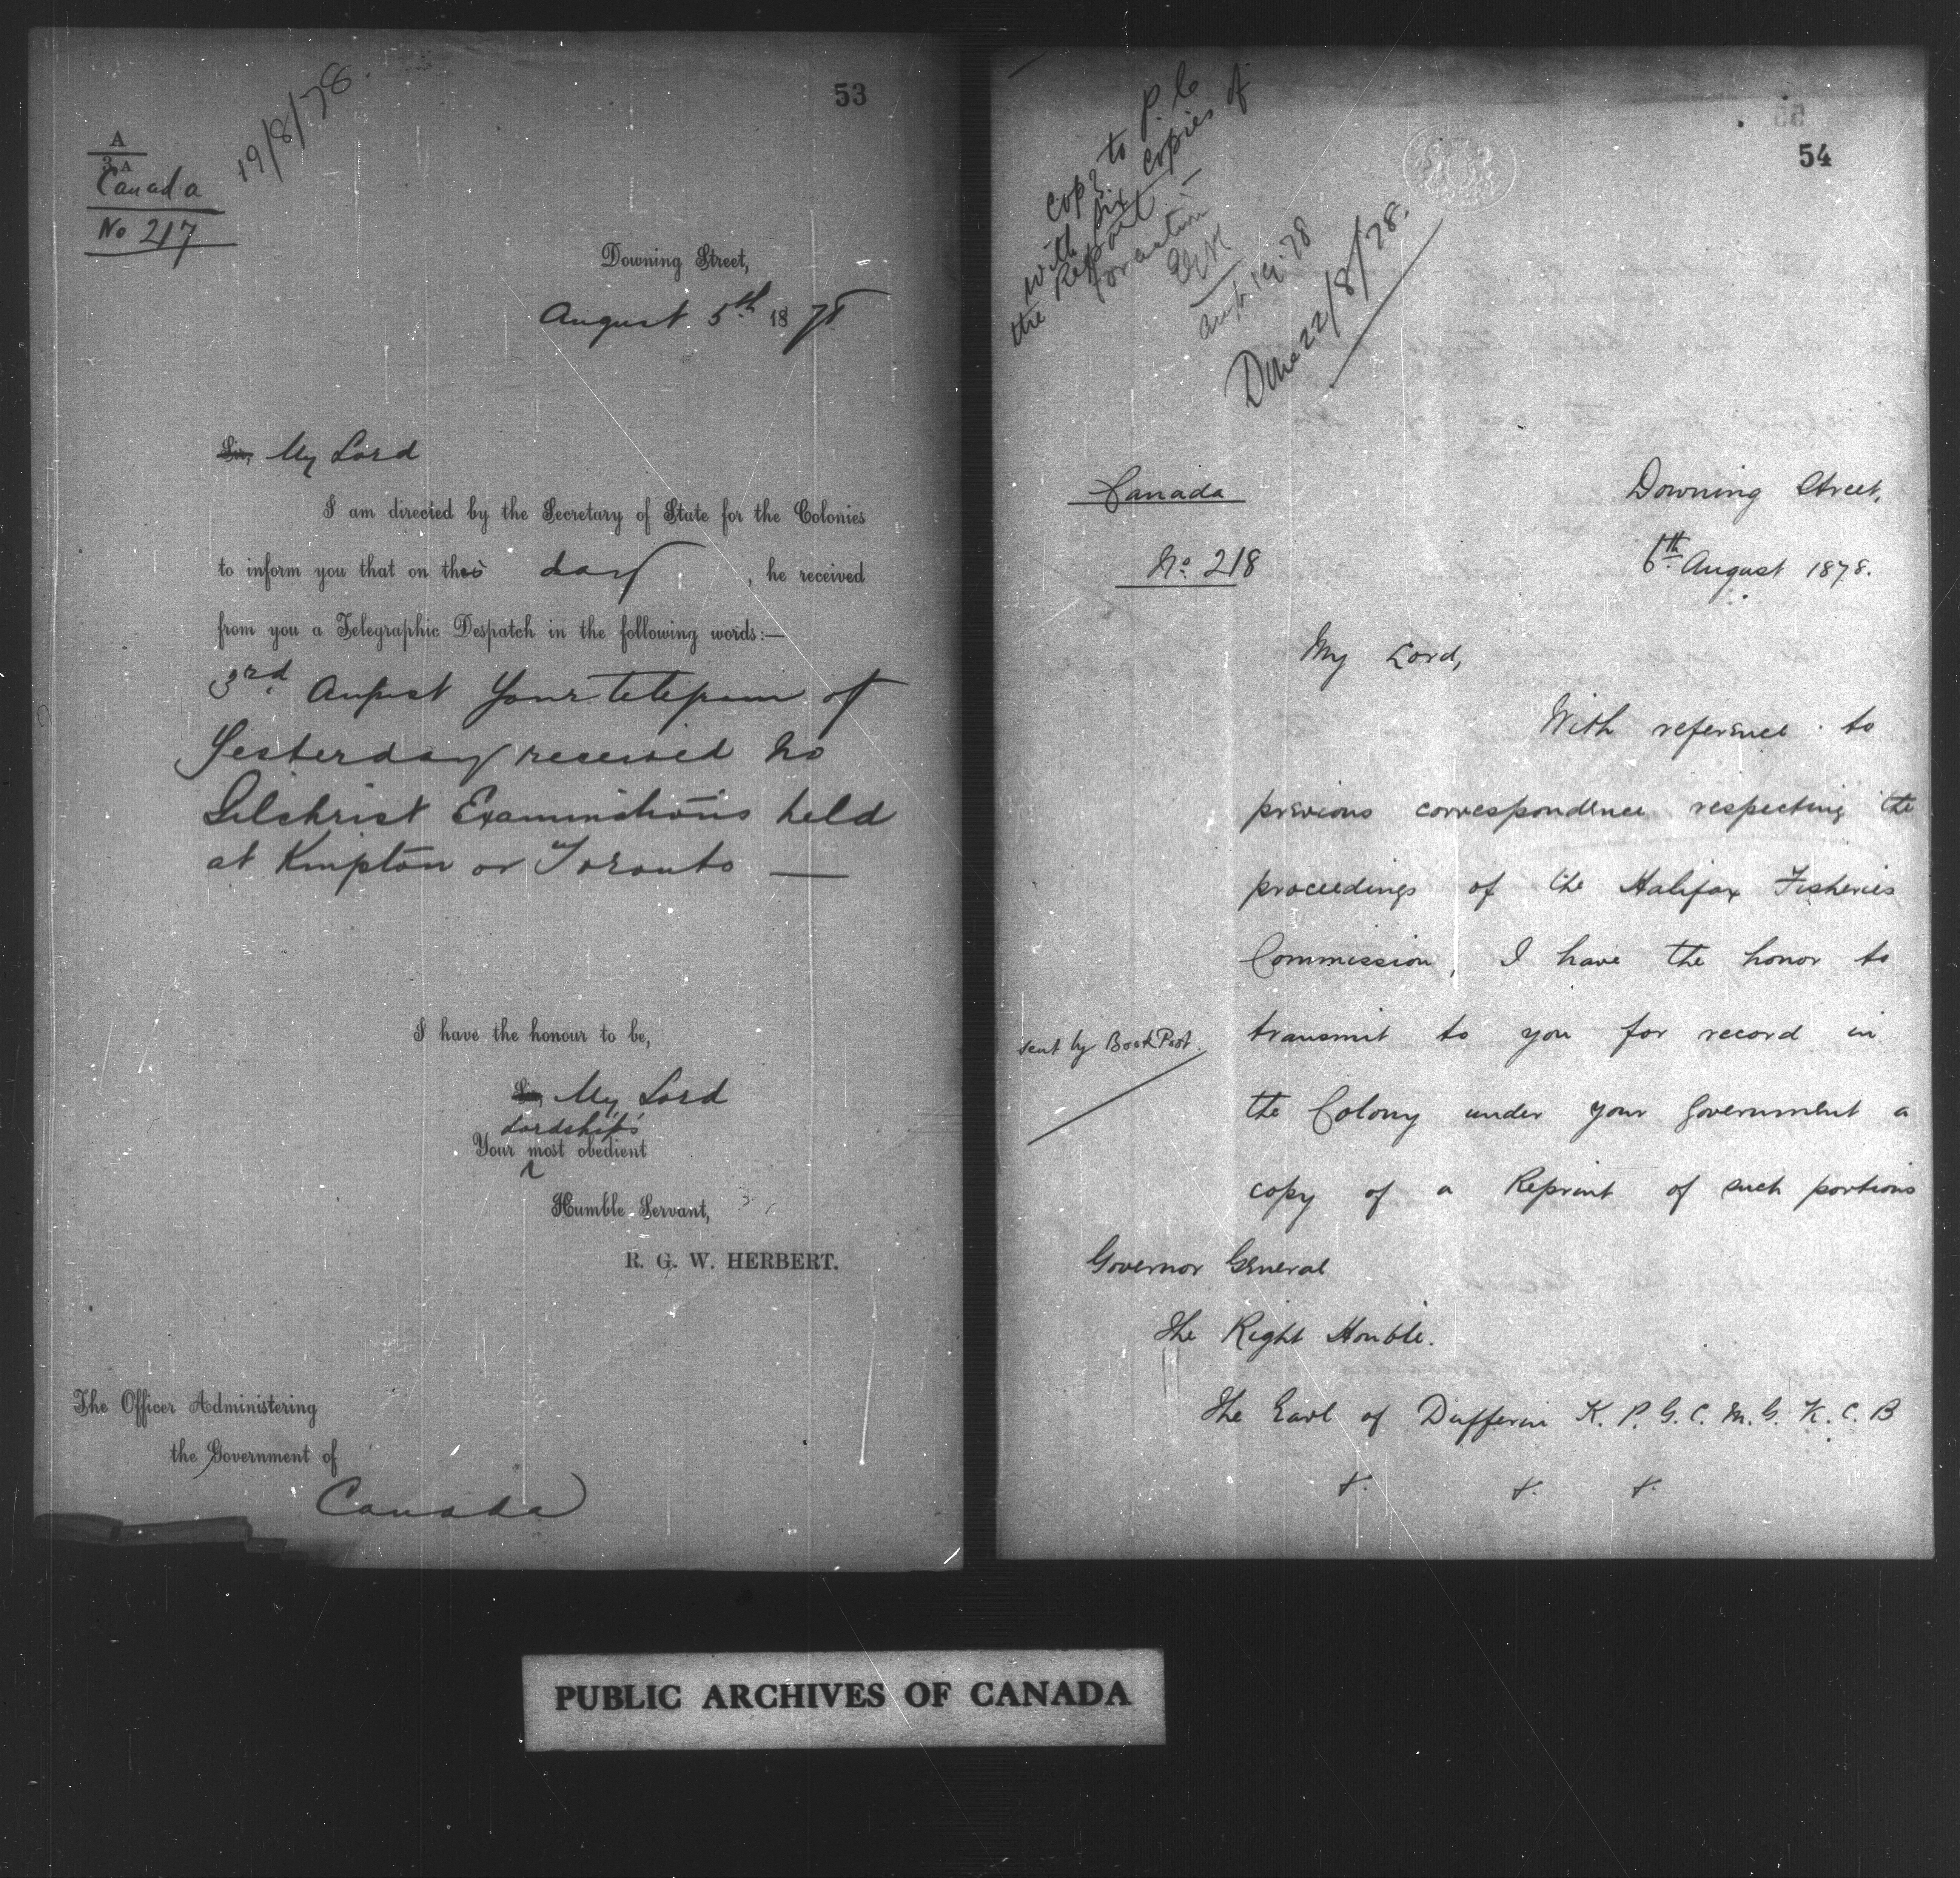 53
19/8/78.
A
3.A
Canada
No 217
Downing Street,
August 5th 1878
Sir, My Lord
I am directed by the Secretary of State for the Colonies
to inform you that on this day, he received
from you a Telegraphic Despatch in the following words:—
3rd August Your telegram of
Yesterday received No
Gilchrist Examinations held
at Kingston or Toronto —
I have the honour to be,
Sir, My Lord
Lordship's
Your most obedient
Humble Servant,
R. G. W. HERBERT.
The Officer Administering
the Government of
Canada
54
Copy to P.C.
with six copies of
the Report —
for action
Aug 19. 78
Done 22/8/78.
Canada
No. 218
Downing Street,
6th August 1878.
My Lord,
With reference to
previous correspondence respecting the
proceedings of the Halifax Fisheries
Commission, I have the honor to
sent by Book Post.
transmit to you for record in
the Colony under your Government a
copy of a Reprint of such portions
Governor General
The Right Honble.
The Earl of Dufferin K. P. G. C. M. G. K. C. B
&. &. &.
PUBLIC ARCHIVES OF CANADA